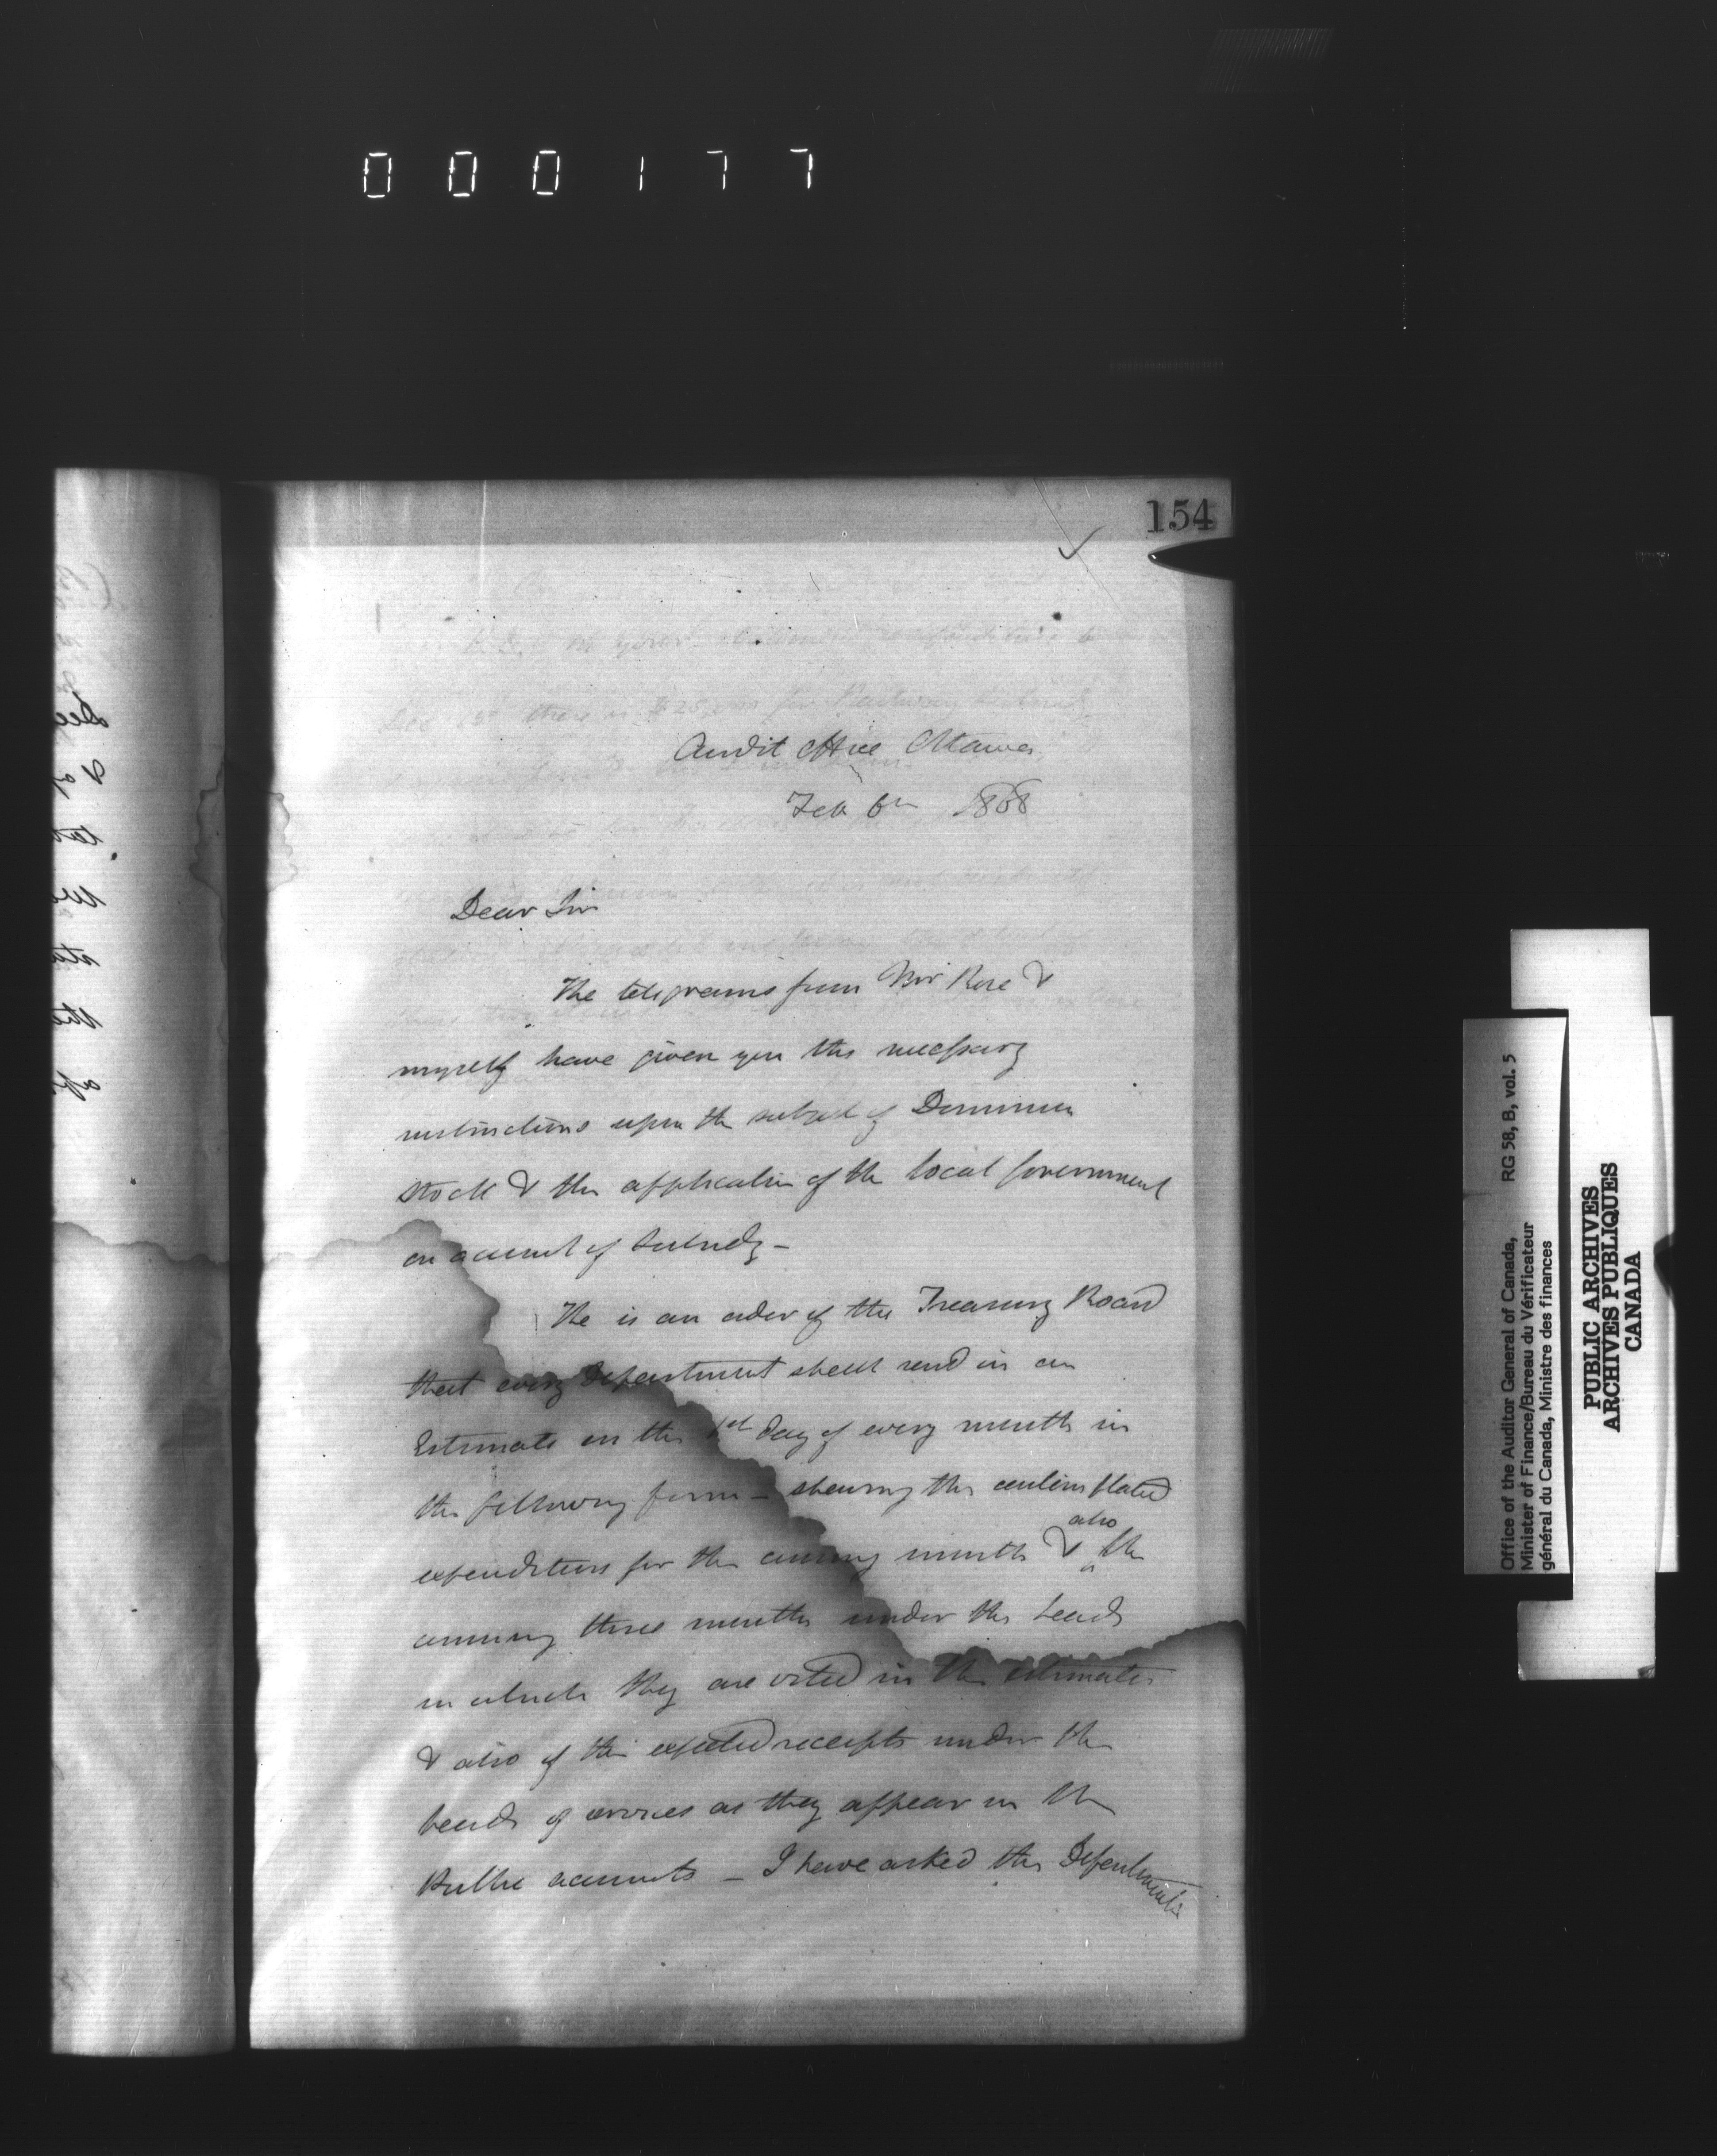 000177
154
Audit Office Ottawa
Feb 6th 1868
Dear Sir
The telegrams from Mr Rose &
myself have given you the necessary
instructions upon the subject of Dominion
Stock & the application of the Local Government
on account of Subsidy –
The is an order of the Treasury Board
that every Department shall send in an
Estimate on the 1st day of every month in
the following form – shewing the contemplated
expenditure for the coming month & also the
coming three months under the heads
in which they are voted in the Estimates
& also of the expected receipts under the
heads of services as they appear in the
Public accounts – I have asked the Departments
Office of the Auditor General of Canada, RG 58, B, vol. 5
Minister of Finance/Bureau du Vérificateur
général du Canada, Ministre des finances
PUBLIC ARCHIVES
ARCHIVES PUBLIQUES
CANADA